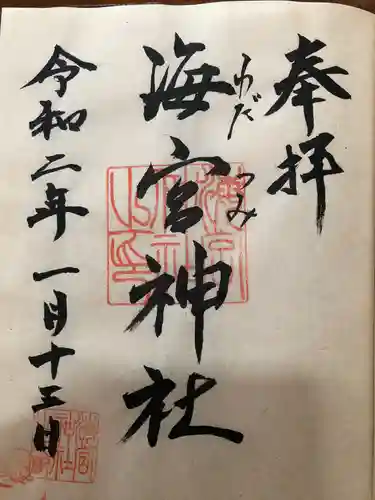 奉拝
海宮神社
わだつみ
令和二年一月十三日